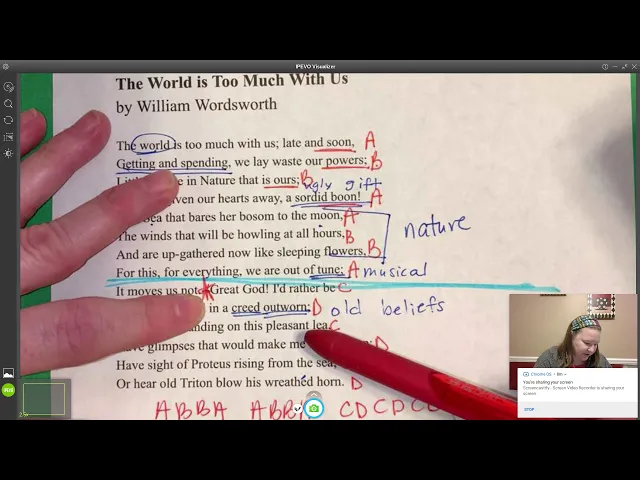 IPEVO Visualizer
The World is Too Much With Us
by William Wordsworth
The world is too much with us; late and soon, A
Getting and spending, we lay waste our powers; B
in Nature that is ours; B ugly gift
our hearts away, a sordid boon! A
that bares her bosom to the moon, A
The winds that will be howling at all hours, B
nature
And are up-gathered now like sleeping flowers, B
For this, for everything, we are out of tune; A musical
It moves us not. Great God! I'd rather be C
in a creed outworn; D old beliefs
on this pleasant lea, C
glimpses that would make me D
Have sight of Proteus rising from the sea;
Or hear old Triton blow his wreathed horn. D
ABBA ABBA CDCDC
Chrome OS • 8m
You're sharing your screen
Screencastify - Screen Video Recorder is sharing your screen.
STOP